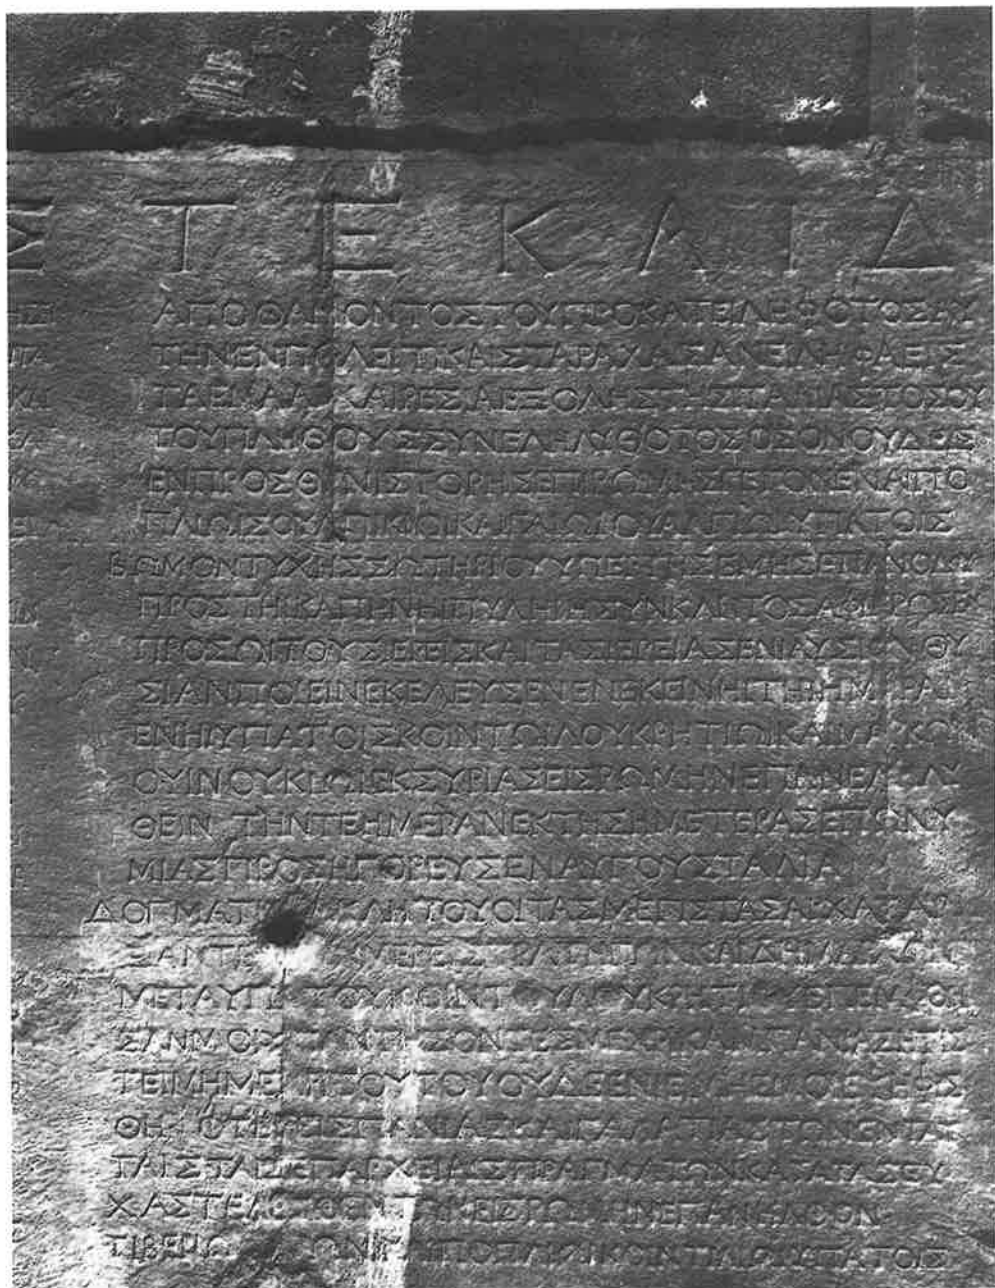 Σ Τ Ε Κ Α Ι Δ
ΑΠΟΘΑΝΟΝΤΟΣΤΟΥΠΡΟΚΑΤΕΙΛΗΦΟΤΟΣΑΥ
ΤΗΝΕΝΠΟΛΕΙΤΙΚΑΙΣΤΑΡΑΧΑΙΣΑΝΕΙΛΗΦΑΕΙΣ
ΤΑΕΜΑΑΡΧΑΙΡΕΣΙΑΕΞΟΛΗΣΤΗΣΙΤΑΛΙΑΣΤΟΣΟΥ
ΤΟΥΠΛΗΘΟΥΣΣΥΝΕΛΗΛΥΘΟΤΟΣΟΣΟΝΟΥΔΕΙΣ
ΕΝΠΡΟΣΘΕΝΙΣΤΟΡΗΣΕΝΕΠΙΡΩΜΗΣΓΕΓΟΝΕΝΑΙΠΟ
ΠΛΙΩΙΣΟΥΛΠΙΚΙΩΙΚΑΙΓΑΙΩΙΟΥΑΛΓΙΩΙΥΠΑΤΟΙΣ
ΒΩΜΟΝΤΥΧΗΣΣΩΤΗΡΙΟΥΥΠΕΡΤΗΣΕΜΗΣΕΠΑΝΟΔΟΥ
ΠΡΟΣΤΗΙΚΑΠΗΝΗΙΠΥΛΗΙΗΣΥΝΚΛΗΤΟΣΑΦΙΕΡΩΣΕΝ
ΠΡΟΣΩΙΤΟΥΣΙΕΡΕΙΣΚΑΙΤΑΣΙΕΡΕΙΑΣΕΝΙΑΥΣΙΟΝΘΥ
ΣΙΑΝΠΟΙΕΙΝΕΚΕΛΕΥΣΕΝΕΝΕΚΕΙΝΗΙΤΗΙΗΜΕΡΑΙ
ΕΝΗΙΥΠΑΤΟΙΣΚΟΙΝΤΩΙΛΟΥΚΡΗΤΙΩΙΚΑΙΜΑΡΚΩΙ
ΟΥΙΝΟΥΚΙΩΙΕΚΣΥΡΙΑΣΕΙΣΡΩΜΗΝΕΠΑΝΕΛΗΛΥ
ΘΕΙΝ ΤΗΝΤΕΗΜΕΡΑΝΕΚΤΗΣΗΜΕΤΕΡΑΣΕΠΩΝΥ
ΜΙΑΣΠΡΟΣΗΓΟΡΕΥΣΕΝΑΥΓΟΥΣΤΑΛΙΑ
ΔΟΓΜΑΤΙ ΚΛΗΤΟΥΟΙΤΑΣΜΕΓΙΣΤΑΣΑΡΧΑΣΑΡ
ΞΑΝΤΕΣ ΜΕΡΕΙΣΤΡΑΤΗΓΩΝΚΑΙΔΗΜΑΡΧΩΝ
ΜΕΤΑΥΠΑΤΟΥΚΟΙΝΤΟΥΛΟΥΚΡΗΤΙΟΥΕΠΕΜΦΘΗ
ΣΑΝΜΟΙΥΠΑΝΤΗΣΟΝΤΕΣΜΕΧΡΙΚΑΜΠΑΝΙΑΣΗΤΙΣ
ΤΕΙΜΗΜΕΧΡΙΤΟΥΤΟΥΟΥΔΕΕΝΙΕΙΜΗΕΜΟΙΕΨΗΦΙΣ
ΘΗ ΟΤΕΕΞΙΣΠΑΝΙΑΣΚΑΙΓΑΛΑΤΙΑΣΤΩΝΕΝΤΑΥ
ΤΑΙΣΤΑΙΣΕΠΑΡΧΕΙΑΙΣΠΡΑΓΜΑΤΩΝΚΑΤΑΤΑΣΕΥ
ΧΑΣΤΕΛΕΣΘΕΝΤΩΝΕΙΣΡΩΜΗΝΕΠΑΝΗΛΘΟΝ
ΤΙΒΕΡΙΩΙ ΝΕΡΩΝΙΚΑΙΠΟΠΛΙΩΙΚΟΙΝΤΙΛΙΩΙΥΠΑΤΟΙΣ